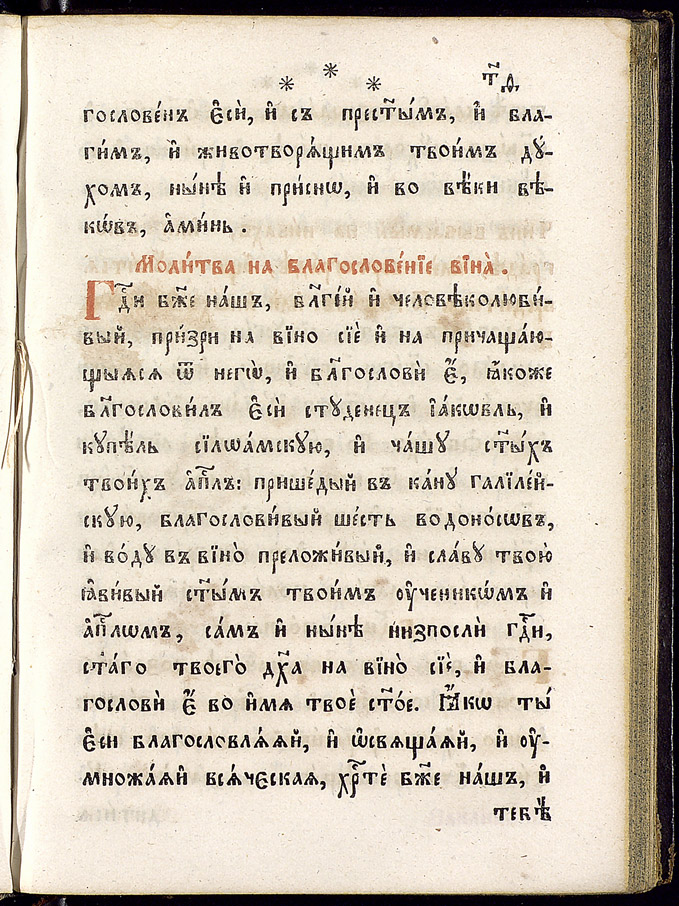 т҃д
гослове́нъ є҆сѝ, и҆ съ прест҃ы́мъ, и҆ бла-
ги́мъ, и҆ животворѧ́щимъ твои́мъ дꙋ́-
хомъ, ны́нѣ и҆ при́снѡ, и҆ во вѣ́ки вѣ-
кѡ́въ, а҆ми́нь.
Моли́тва на благослове́нїе вїна̀.
Гд҃и бж҃е на́шъ, бл҃гі́й и҆ человѣколюби́-
вый, при́зри на вїно̀ сїѐ и҆ на причаща́ю-
щыѧсѧ ѿ негѡ̀, и҆ бл҃гословѝ є҆̀, ꙗ҆́коже
бл҃гослови́лъ є҆сѝ стꙋдене́цъ і҆а́кѡвль, и҆
кꙋпѣ́ль сїлѡа́мскꙋю, и҆ ча́шꙋ ст҃ы́хъ
твои́хъ а҆пⷭ҇лъ: прише́дый въ ка́нꙋ галїле́й-
скꙋю, благослови́вый ше́сть водоно́сѡвъ,
и҆ во́дꙋ въ вїно̀ преложи́вый, и҆ сла́вꙋ твою̀
ꙗ҆ви́вый ст҃ы́мъ твои́мъ ᲂу҆ченикѡ́мъ и҆
а҆пⷭ҇лѡмъ, са́мъ и҆ ны́нѣ низпослѝ гд҃и,
ст҃а́го твоегѡ̀ дх҃а на вїно̀ сїѐ, и҆ бла-
гословѝ є҆̀ во и҆́мѧ твоѐ ст҃о́е. Ꙗ҆́кѡ ты̀
є҆сѝ благословлѧ́ѧй, и҆ ѡ҆свѧща́ѧй, и҆ ᲂу҆-
множа́ѧй всѧ́ческаѧ, хрⷭ҇тѐ бж҃е на́шъ, и҆
тебѣ̀